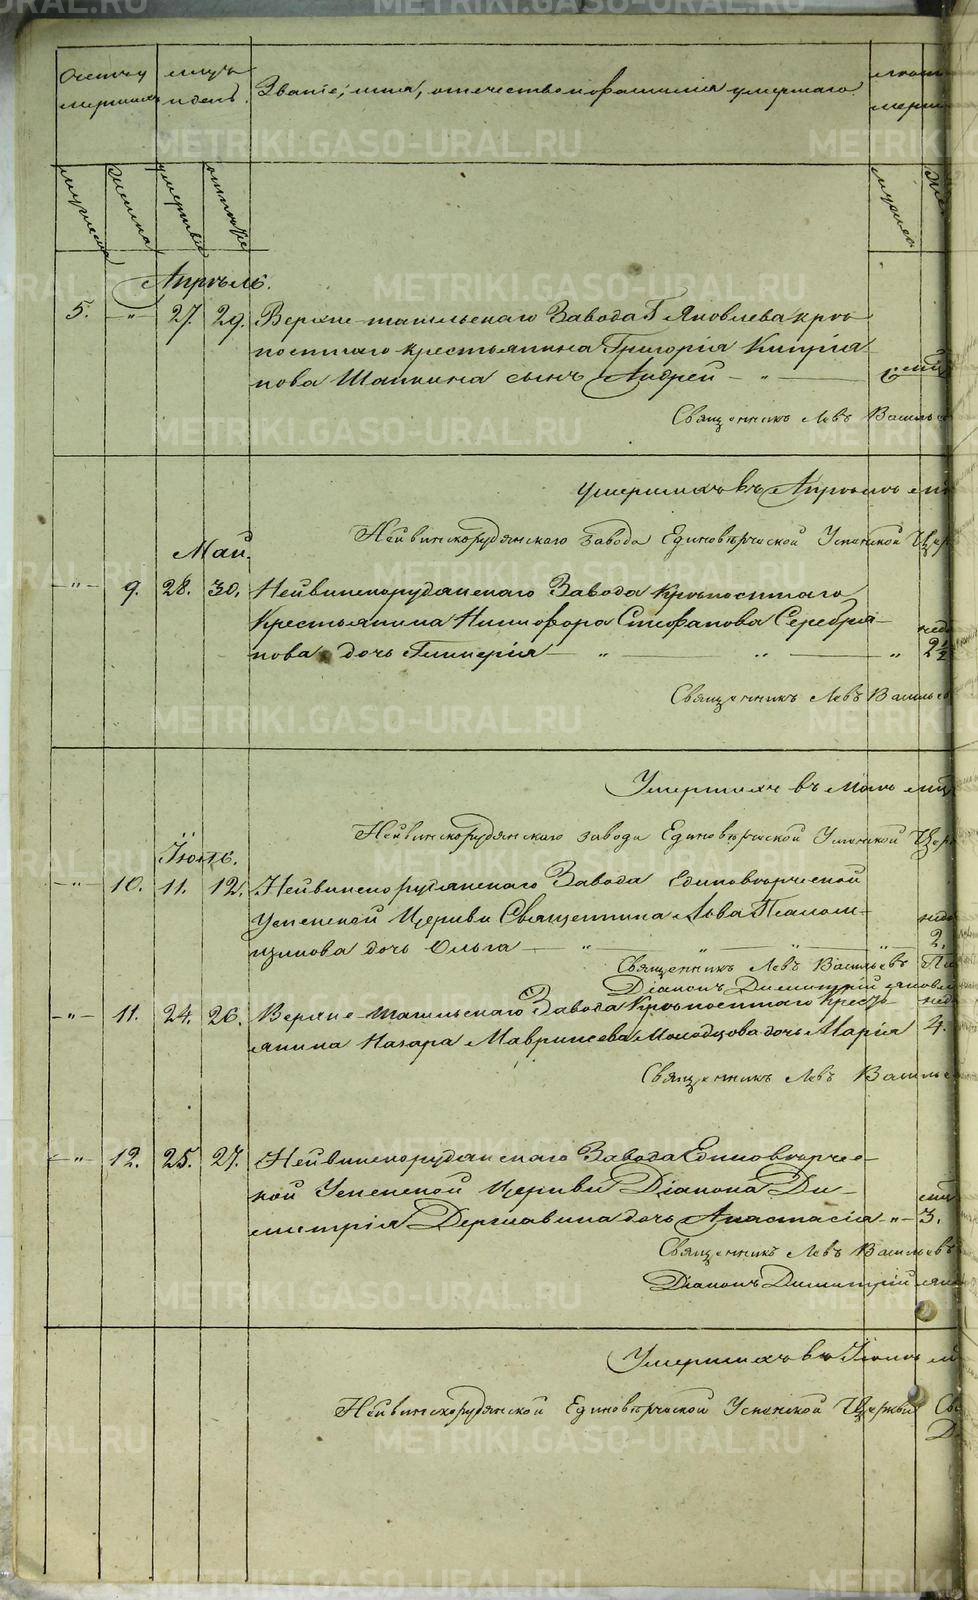 Счетъ у
мершихъ
мцъ
и день.
Званіе, имя, отечество и фамилія умершаго
мерш
мужеска
женска
смерти
мужеска
Апрѣль.
5. " 27. 29. Верхне-тагильскаго Завода Г. Яковлева крѣ-
постнаго крестьянина Григорія Кипріа-
нова Шапкина сынъ Андрей — " —
Священникъ Левъ Василье
умершихъ въ Апрѣлѣ
Нейвинскорудянскаго завода Единовѣрческой Успенской Цер
Май.
" 9. 28. 30. Нейвинскорудянскаго Завода крѣпостнаго
Крестьянина Никифора Стефанова Серебря-
нова дочь Гликерія — " — " — " 2½
Священникъ Левъ Васильев
Умершихъ въ Маѣ мц
Нейвинскорудянскаго завода Единовѣрческой Успенской Цер
Іюнь.
" 10. 11. 12. Нейвинскорудянскаго Завода Единовѣрческой
Успенской Церкви Священника Льва Псалом-
щикова дочь Ольга — " — " — " — " 2.
Священникъ Левъ Васильевъ
Діаконъ Димитрій
" 11. 24. 26. Верхне-тагильскаго Завода Крѣпостнаго Кресть-
янина Назара Маврикеева Молодцова дочь Марія 4.
Священникъ Левъ Василье
" 12. 25. 27. Нейвинскорудянскаго Завода Единовѣрчес-
кой Успенской Церкви Діакона Ди-
митрія Державина дочь Анастасія — " — 3.
Священникъ Левъ Васильевъ
Діаконъ Димитрій
Умершихъ въ Іюнѣ
Нейвинскорудянской Единовѣрческой Успенской Церкви
METRIKI.GASO-URAL.RU